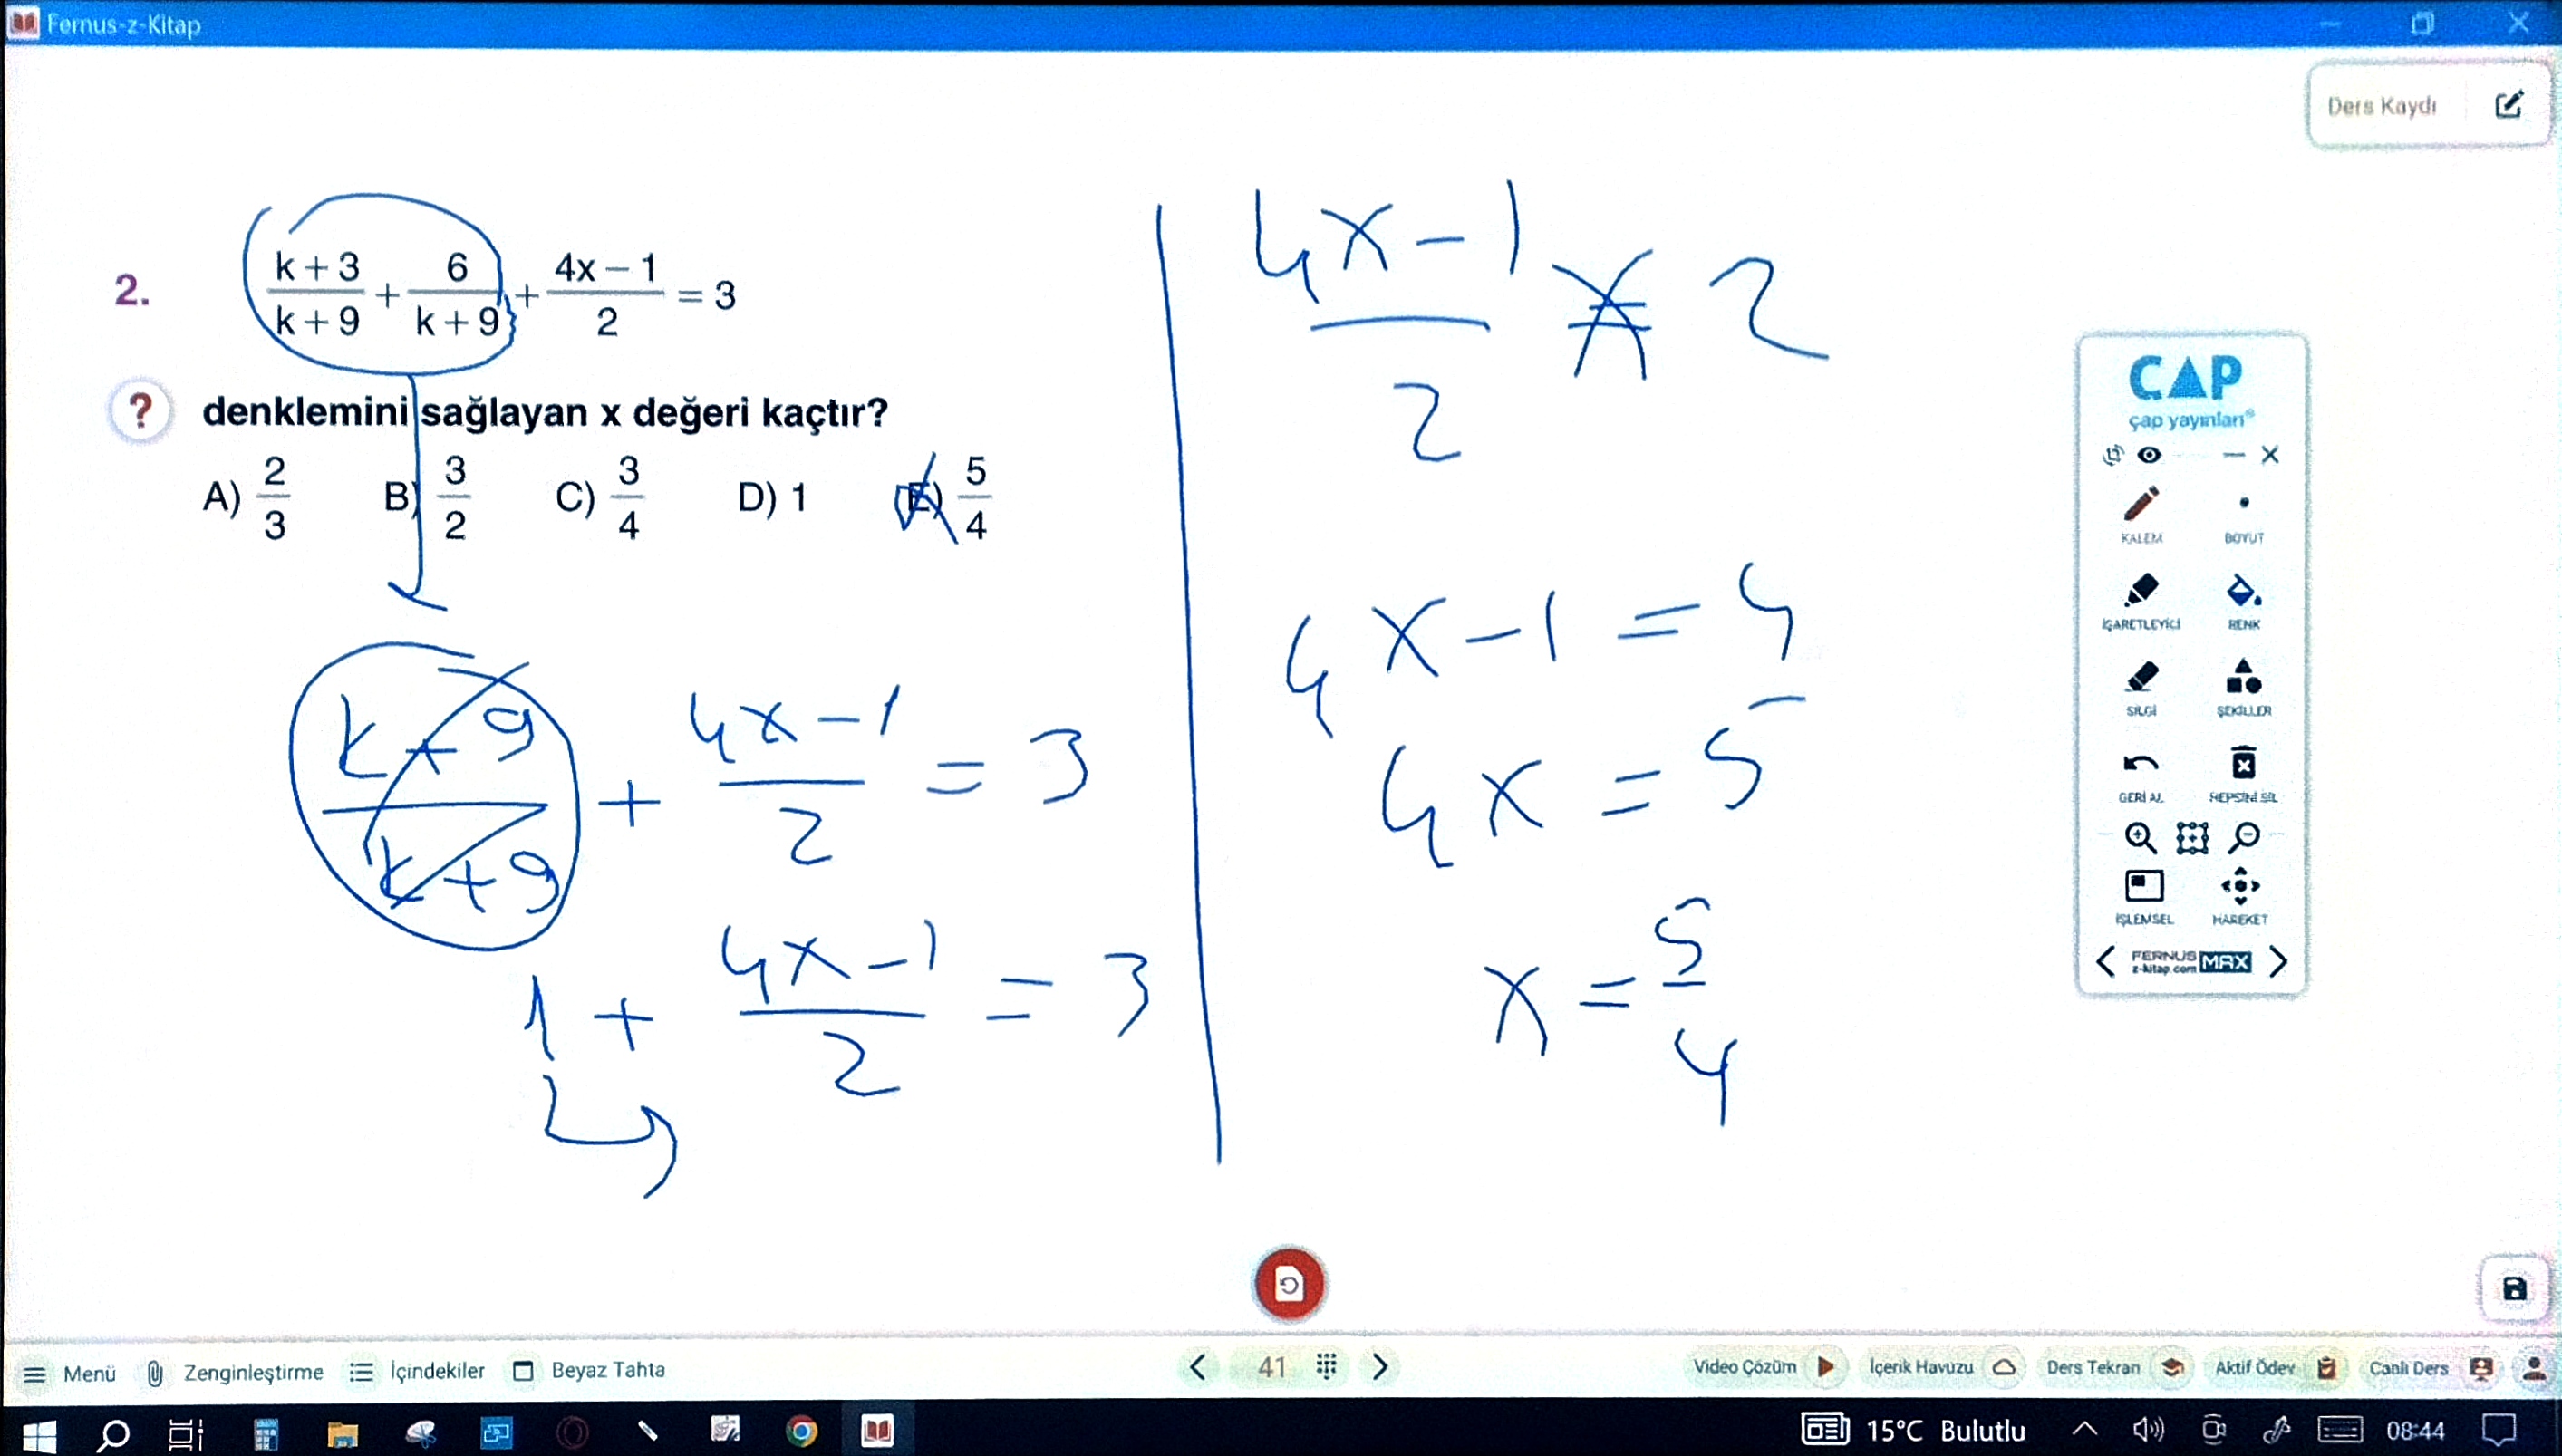 Fernus-z-Kitap
Ders Kaydı
2. k+3/k+9 + 6/k+9 + 4x−1/2 = 3
? denklemini sağlayan x değeri kaçtır?
A) 2/3 B) 3/2 C) 3/4 D) 1 E) 5/4
k+9/k+9 + 4x−1/2 = 3
1 + 4x−1/2 = 3
4x−1/2 = 2
4x−1 = 4
4x = 5
x = 5/4
ÇAP
çap yayınları®
KALEM BOYUT
İŞARETLEYİCİ RENK
SİLGİ ŞEKİLLER
GERİ AL HEPSİNİ SİL
İŞLEMSEL HAREKET
FERNUS
z-kitap.com MAX
Menü Zenginleştirme İçindekiler Beyaz Tahta 41 Video Çözüm İçerik Havuzu Ders Tekrarı Aktif Ödev Canlı Ders
15°C Bulutlu 08:44